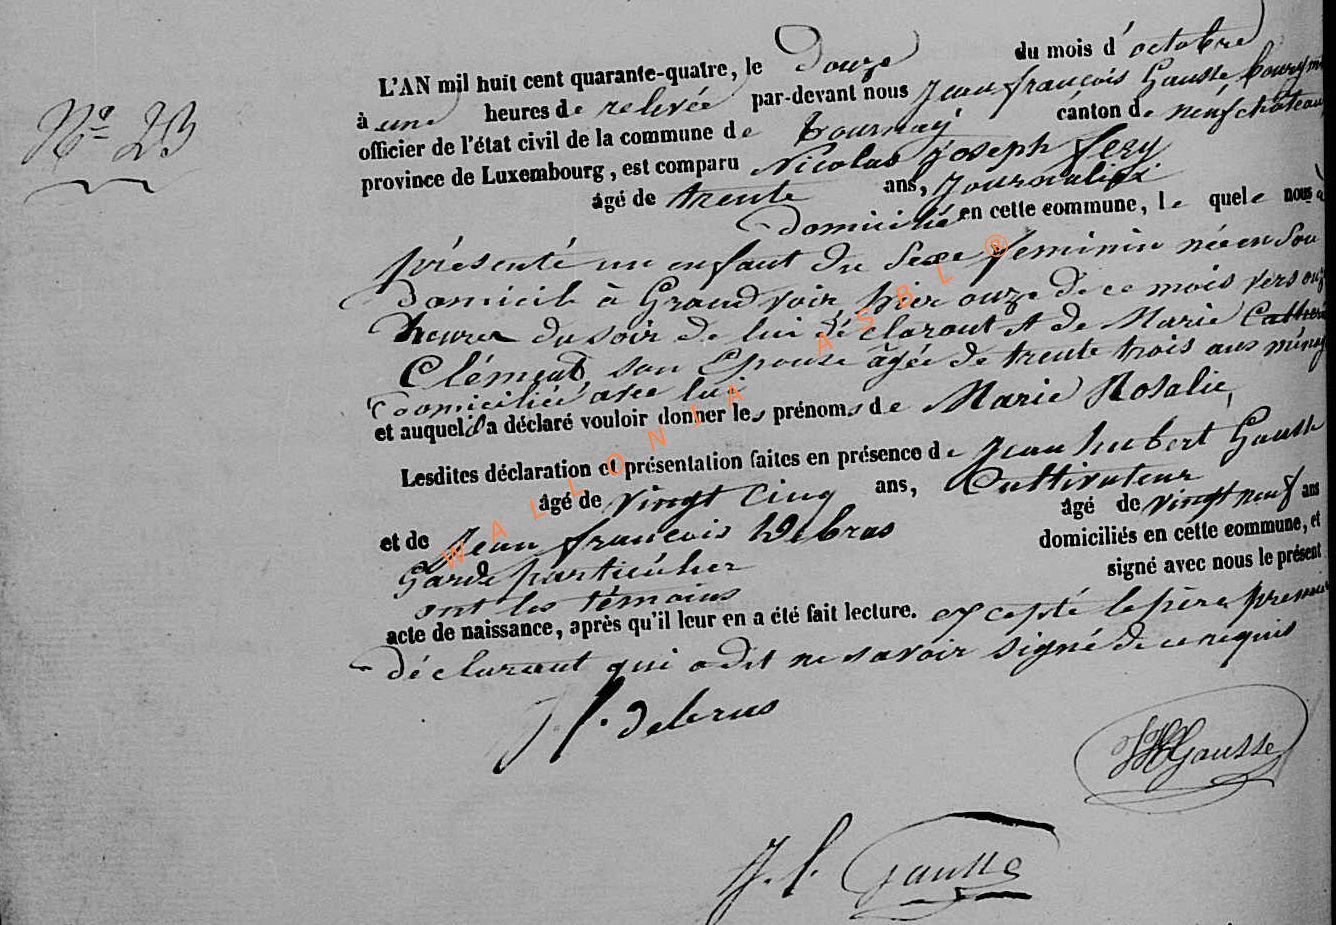 N° 23
L'AN mil huit cent quarante-quatre, le Douze du mois d'octobre
à une heures de relevée par-devant nous Jean françois Gausse bourgm
officier de l'état civil de la commune de Tournay canton de neufchâteau
province de Luxembourg, est comparu Nicolas Joseph
âgé de trente ans, Journalier
Domicilié en cette commune, le quele nous a
présenté un enfant du sexe feminin née en Son
Domicile à Grandvoir hier onze de ce mois vers onz
heures du soir de lui déclarant et de Marie Catheri
Clément son Epouse âgée de trente trois ans ménag
Domiciliée avec lui
et auquel il a déclaré vouloir donner les prénoms de Marie Rosalie,
Lesdites déclaration et présentation faites en présence de Jean hubert Gausse
âgé de vingt cinq ans, Cultivateur
et de Jean françois Debras âgé de vingt neuf ans
Garde particulier domiciliés en cette commune, et
ont les témoins signé avec nous le présent
acte de naissance, après qu'il leur en a été fait lecture. excepté le père premier
déclarant qui a dit ne savoir signé de ce requis
J f. Debras
JH Gausse
J. f. Gausse
WALLONIA ASBL ®